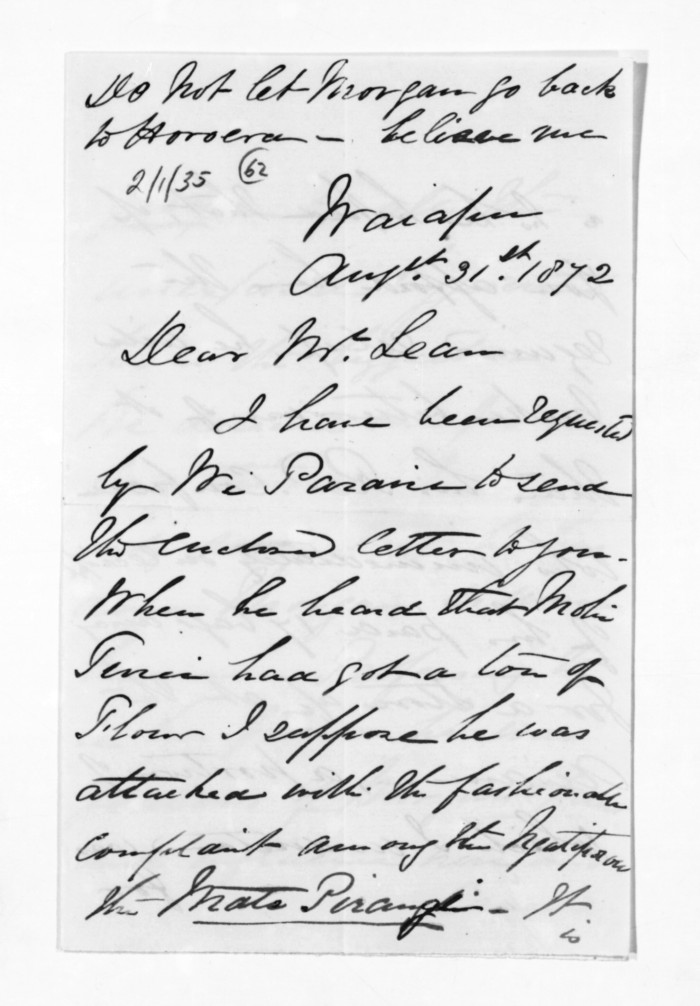 Do Not let Morgan go back
to Horoera – believe me
2/1/35 62
Waiapu
Augst. 31st. 1872
Dear Mr. Lean
I have been requested
by Wi Paraire to send
the enclosed letter to you.
When he heard that Mohi
Turei had got a ton of
Flour I suppose he was
attacked with the fashionable
complaint among the Ngatiporou
the Mate Pirangi – It
is